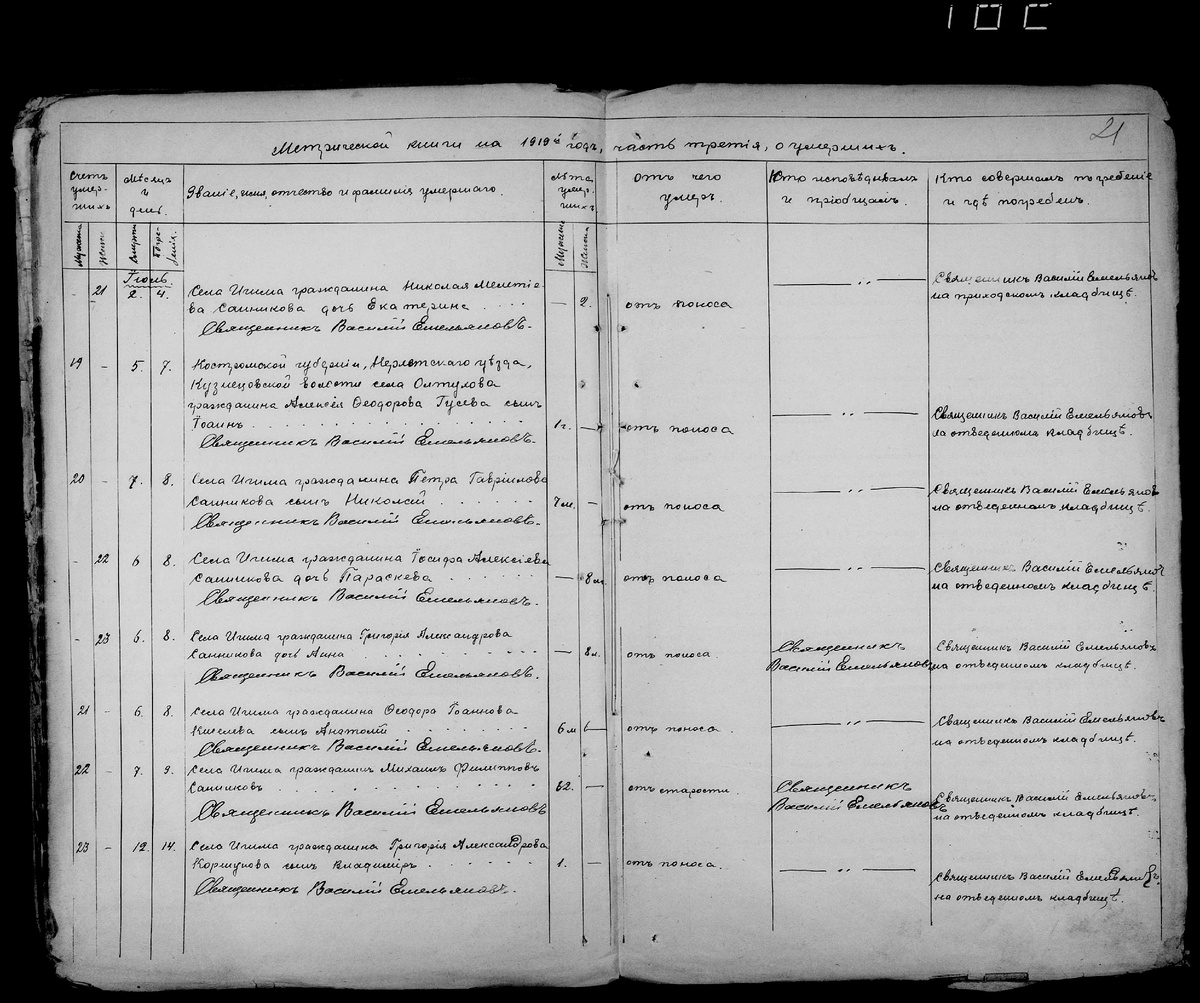 21
Метрической книги на 1919й годъ, часть третія, о умершихъ.
Счетъ умер-шихъ
Мѣсяцъ и день.
Званіе, имя, отчество и фамилія умершаго.
Лѣта умер-шихъ.
отъ чего умеръ.
Кто исповѣдывалъ и пріобщалъ.
Кто совершалъ погребеніе и гдѣ погребенъ.
Мужска Женск Смерти Погре-бенія. Мужск Женска
Іюль
- 21 2. 4. Села Игима гражданина Николая Мелетіе-
ва Санникова дочь Екатерина . . . . — 2. отъ поноса — „ — Священникъ Василій Емельяновъ
на приходскомъ кладбищѣ.
Священникъ Василій Емельяновъ.
19 - 5. 7. Костромской губерніи, Уѣзда,
Кузнецовской волости села Олтухова
гражданина Алексѣя Ѳеодорова Гусева сынъ
Іоаннъ . . . . . . 1г. — отъ поноса — „ — Священникъ Василій Емельяновъ
на отведенномъ кладбищѣ.
Священникъ Василій Емельяновъ.
20 - 7. 8. Села Игима гражданина Петра Гавріилова
Санникова сынъ Николай . . . . . 7м. — отъ поноса — „ — Священникъ Василій Емельяновъ
на отведенномъ кладбищѣ.
Священникъ Василій Емельяновъ.
- 22 6 8. Села Игима гражданина Іосифа Алексіева
Санникова дочь Параскева . . . . . — 8м. отъ поноса — „ — Священникъ Василій Емельяновъ
на отведенномъ кладбищѣ.
Священникъ Василій Емельяновъ.
- 23 6. 8. Села Игима гражданина Григорія Александрова
Санникова дочь Анна . . . . . . — 8л. отъ поноса. Священникъ
Василій Емельяновъ Священникъ Василій Емельяновъ
на отведенномъ кладбищѣ.
Священникъ Василій Емельяновъ.
21 - 6. 8. Села Игима гражданина Ѳеодора Іоаннова
Киселева сынъ Анатолій . . . . . 6м — отъ поноса. — „ — Священникъ Василій Емельяновъ
на отведенномъ кладбищѣ.
Священникъ Василій Емельяновъ.
22 - 7. 9. Села Игима гражданинъ Михаилъ Филипповъ
Санниковъ . . . . . . 62. — отъ старости. Священникъ
Василій Емельяновъ Священникъ Василій Емельяновъ
на отведенномъ кладбищѣ.
Священникъ Василій Емельяновъ
23 - 12. 14. Села Игима гражданина Григорія Александрова
Коршунова сынъ Владиміръ . . . . . 1. — отъ поноса. — „ — Священникъ Василій Емельяновъ.
на отведенномъ кладбищѣ.
Священникъ Василій Емельяновъ.